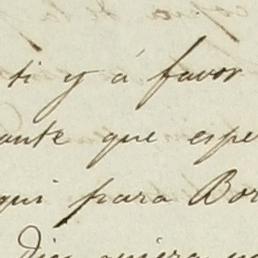 ti y á favor
ante que espe
qui para Bor
Dios quiera